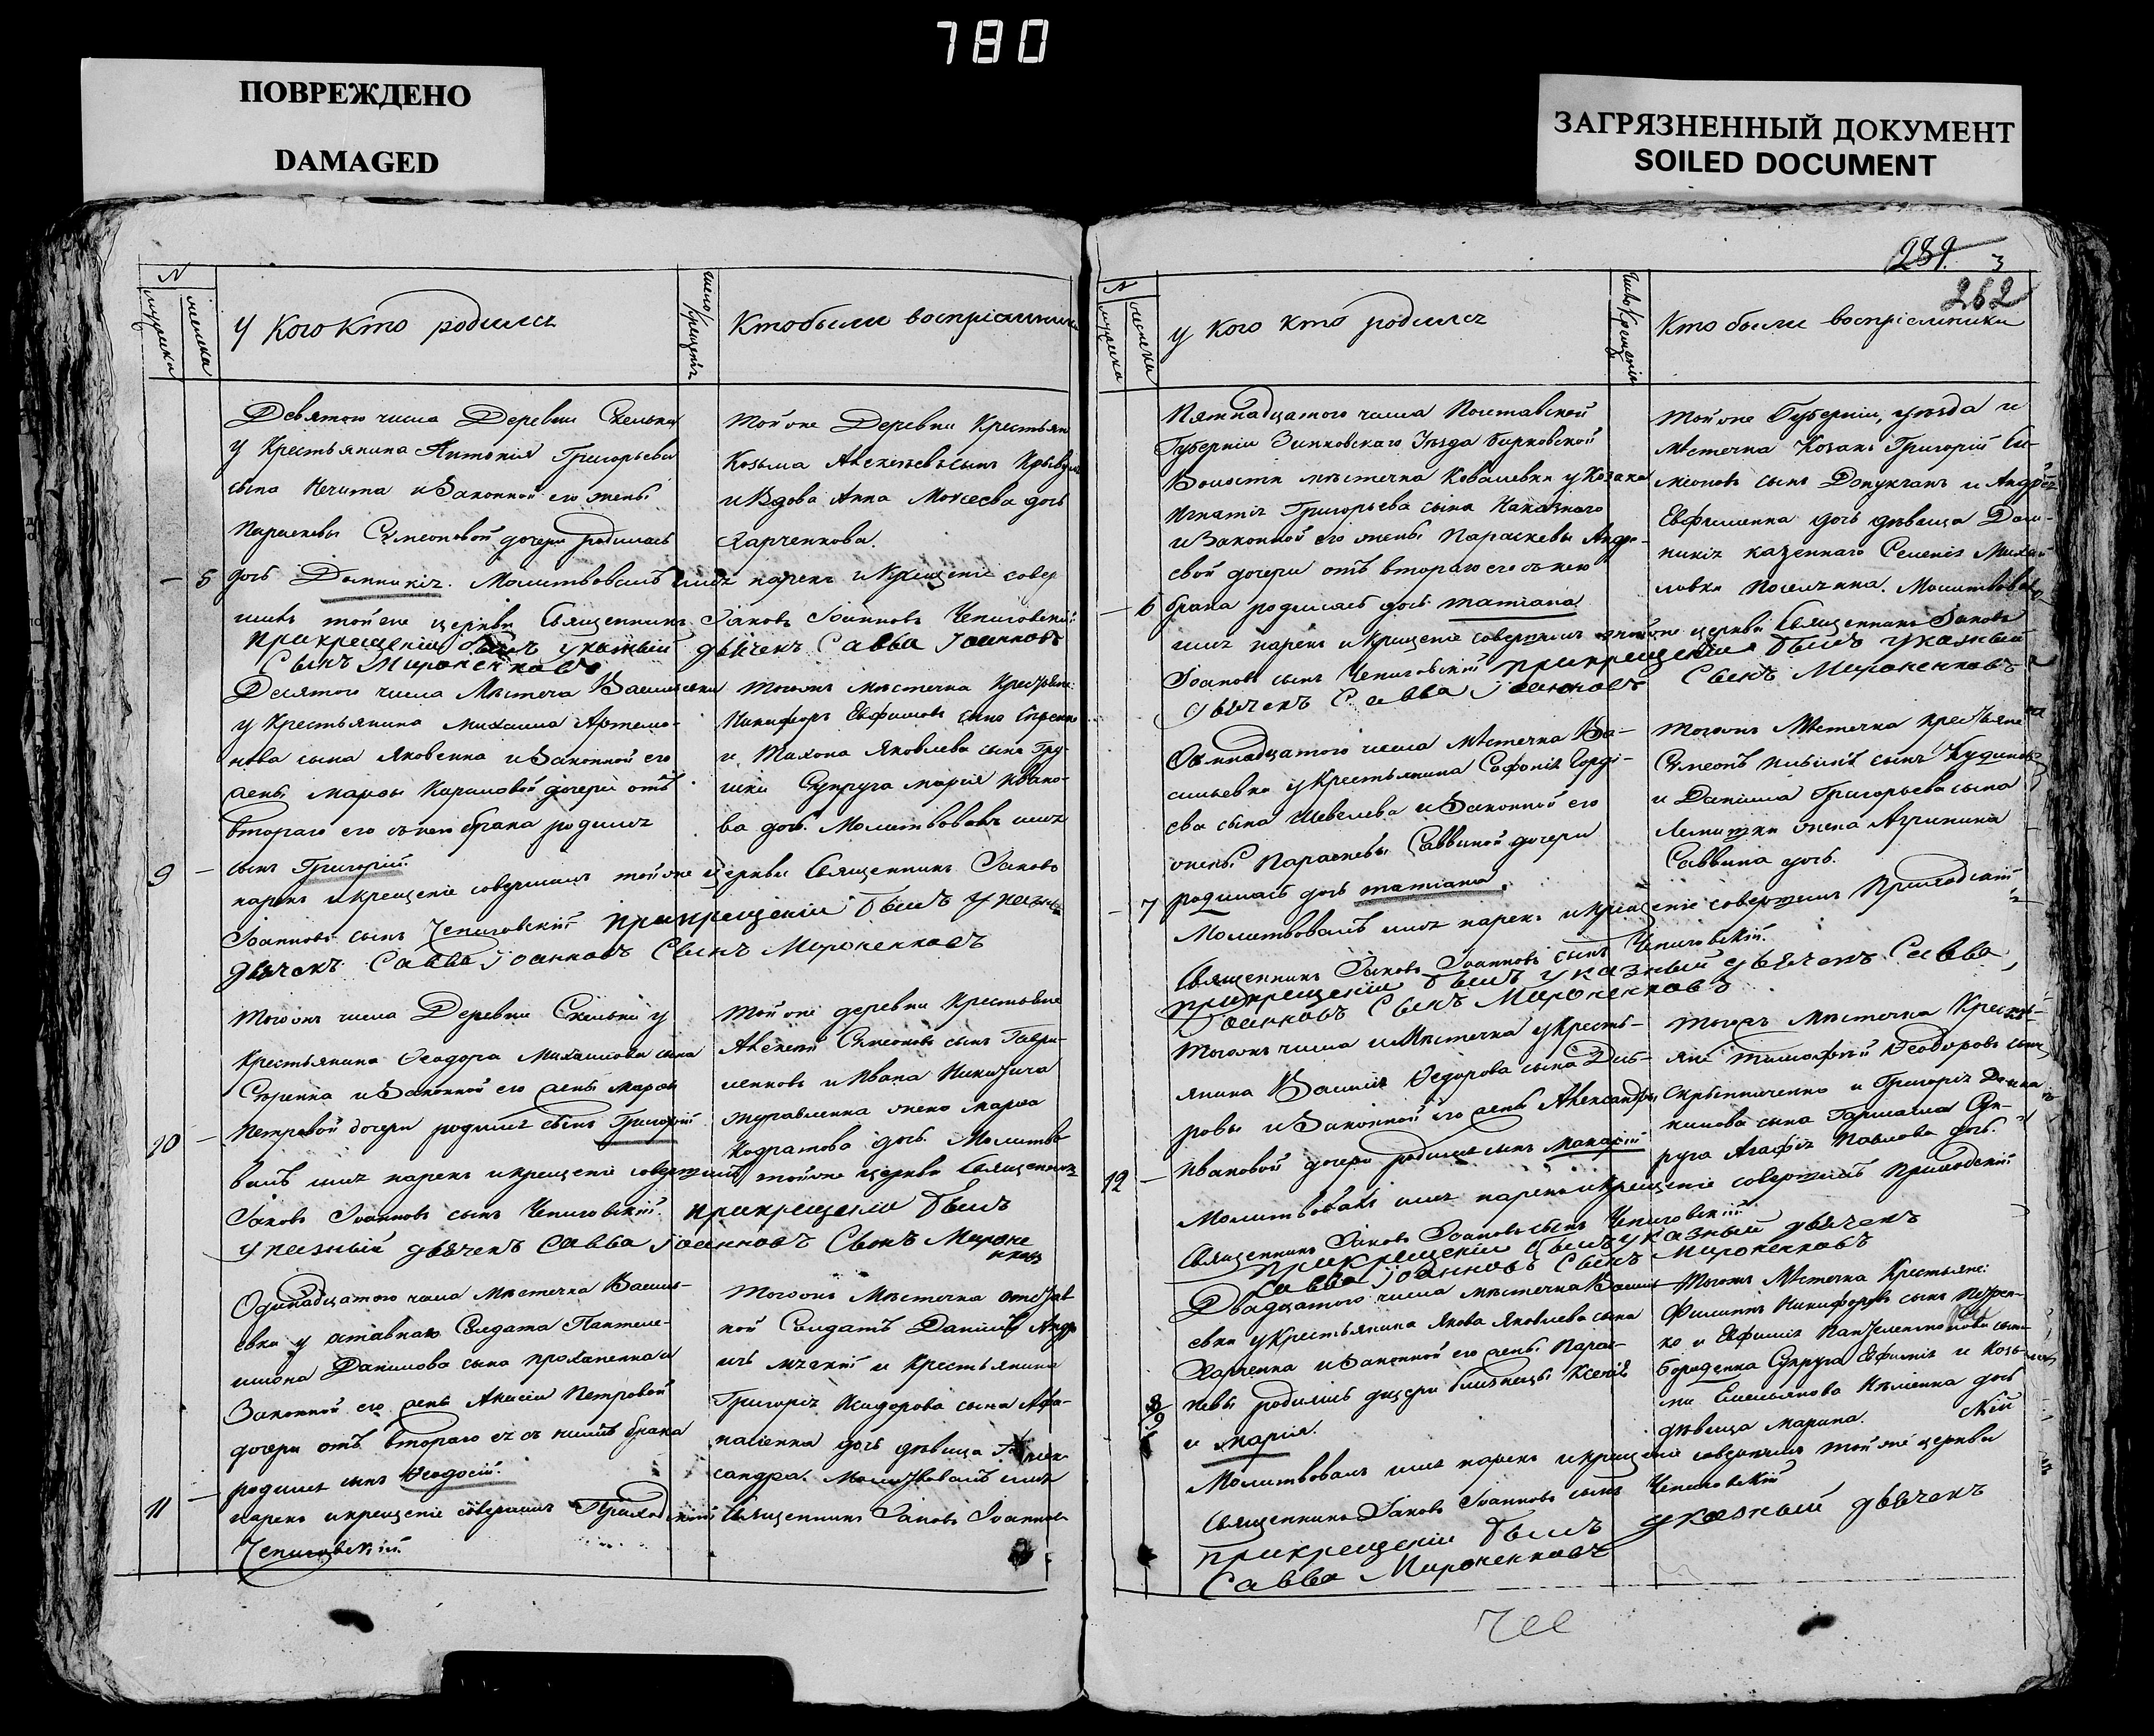 780
ПОВРЕЖДЕНО
DAMAGED
ЗАГРЯЗНЕННЫЙ ДОКУМЕНТ
SOILED DOCUMENT
N
мужеска
женска
У кого кто родился
число крещенія
Кто были воспріемники
Девятого числа Деревни Скельки
у Крестьянина Антонія Григорьева
сына Нечита и Законной его жены
Параскевы Сумеоновой дочери родилась
5 дочь Домникія. Молитвовалъ имя нарекъ и Крещеніе совер
шилъ тойже церкви Священникъ Іаковъ Іоанновъ Чепиговскій
При крещеніи былъ указный дьячекъ Савва Іоанновъ
Сынъ Мироненковъ
Тойже Деревни Крестьян
Козьма сынъ
и Вдова Анна Моисеева дочь
Харченкова.
Десятого числа Мѣстеч Василевки
у Крестьянина Михаила Артемо-
нова сына Яковенка и Законной его
жены Марфы Кириловой дочери отъ
втораго его съ нею брака родился
9 сынъ Григорій.
нарекъ и крещеніе совершилъ тойже церкви Священникъ Іаковъ
Іоанновъ сынъ Чепиговскій При крещеніи былъ указный
дьячекъ Савва Іоанновъ Сынъ Мироненковъ
Тогожъ мѣстечка Крестьяне:
Никифоръ Евфимовъ сынъ
и Тихона Яковлева сына Гру-
шки Супруга Марія Ивано-
ва дочь. Молитвовалъ имя
Тогожъ числа Деревни Скельки у
Крестьянина Ѳеодора Михайлова сына
Сѣренка и Законной его жены Марфы
10 Петровой дочери родился сынъ Григорій
валъ имя нарекъ и крещеніе совершилъ тойже церкви Священникъ
Іаковъ Іоанновъ сынъ Чепиговскій. При крещеніи былъ
указный дьячекъ Савва Іоанновъ Сынъ Мироне
нковъ
Тойже деревни Крестьяне
Алексій Сумеоновъ сынъ Гаври-
ленковъ и Ивана Никитича
Журавленка жена Марфа
Кодратова дочь. Молитво
Одинадцатого числа Мѣстечка Василь-
евки у отставнаго Солдата Пантеле-
имона Данилова сына и
Законной его жены Акилины Петровой
дочери отъ втораго ея съ нимъ брака
родился сынъ Ѳеодосій.
11 нарекъ и крещеніе совершилъ Приходскій Священникъ Іаковъ Іоанновъ
Чепиговскій.
Тогожъ Мѣстечка отстав
ной Солдатъ Даніилъ
и Крестьянина
Григорія Исидорова сына Афа-
насіенка дочь дѣвица
сандра. Молитвовалъ имя
281. 3
262
N
мужеска
женска
У кого кто родился
число Крещенія
Кто были воспріемники
Пятнадцатого числа Полтавской
Губерніи Зинковскаго Уѣзда Борковской
Волости мѣстечка Ковалевки у Козака
Игнатія Григорьева сына Наказного
и Законной его жены Параскевы Андре-
евой дочери отъ втораго его съ нею
6 брака родилась дочь Татіана
имя нарекъ и Крещеніе совершилъ тойже церкви Священникъ Іаковъ
Іоанновъ сынъ Чепиговскій При крещеніи былъ указный
дьячекъ Савва Іоанновъ Сынъ Мироненковъ
Тойже Губерніи, уѣзда и
Мѣстечка Козакъ Григорій Си-
меоновъ сынъ и Андрея
Евфименка дочь дѣвица Дом-
никія казеннаго Селенія Михай
ловки Поселянка. Молитвовалъ
Осьмнадцатого числа Мѣстечка Ва-
сильевки у Крестьянина Софонія Горді-
ева сына Шевелева и Законной его
жены Параскевы Саввиной дочери
7 родилась дочь Татіана.
Молитвовалъ имя нарекъ и крещеніе совершилъ Приходскій
Священникъ Іаковъ Іоанновъ сынъ Чепиговскій.
При крещеніи былъ указный дьячекъ Савва
Іоанновъ Сынъ Мироненковъ
Тогожъ Мѣстечка Крестьяне
Сумеонъ сынъ
и Даніила Григорьева сына
жена Агрипина
Саввина дочь.
Тогожъ числа и Мѣстечка у Кресть-
янина Василія Ѳедорова сына Дех-
ровы и Законной его жены Александры
12 Ивановой дочери родился сынъ Макарій
Молитвовалъ имя нарекъ и крещеніе совершилъ Приходскій
Священникъ Іаковъ Іоанновъ сынъ Чепиговскій
При крещеніи былъ указный дьячекъ
Савва Іоанновъ Сынъ Мироненковъ
Тогожъ Мѣстечка Кресть-
яне Тимофѣй Ѳеодоровъ сынъ
и Григорія
сына Су-
пруга Агафія Павлова дочь.
Двадцатого числа мѣстечка Василь
евки у Крестьянина Якова Яковлева сына
Харченка и Законной его жены Парас-
8/9 кевы родились дщери близнецы Ксенія
и Марія.
Молитвовалъ имя нарекъ и крещеніе совершилъ тойже церкви
Священникъ Іаковъ Іоанновъ сынъ Чепиговскій
При крещеніи былъ указный дьячекъ
Савва Мироненковъ
Тогожъ Мѣстечка Крестьяне:
Филиппъ Никифоровъ сынъ Петрен-
ко и Евфимія сына
Бороденка Супруга Евфимія и Козь-
мы Емельянова дочь
дѣвица Марина.